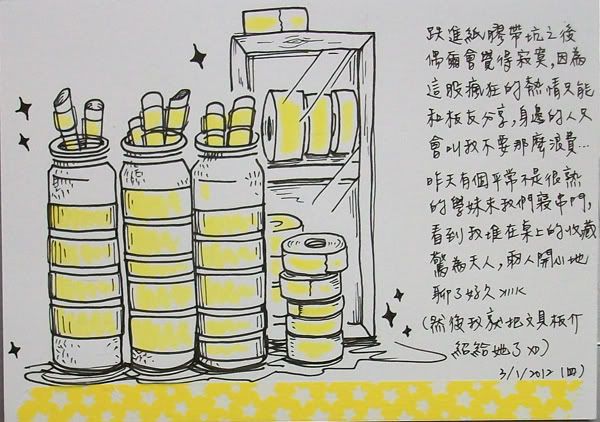 跌進紙膠帶坑之後
偶爾會覺得寂寞,因為
這股瘋狂的熱情只能
和板友分享,身邊的人只
會叫我不要那麼浪費…
昨天有個平常不是很熟
的學妹來我們寢串門,
看到我堆在桌上的收藏
驚為天人,兩人開心地
聊了好久
(然後我就把文具板介
紹給她了 XD)
3/1/2012 (四)